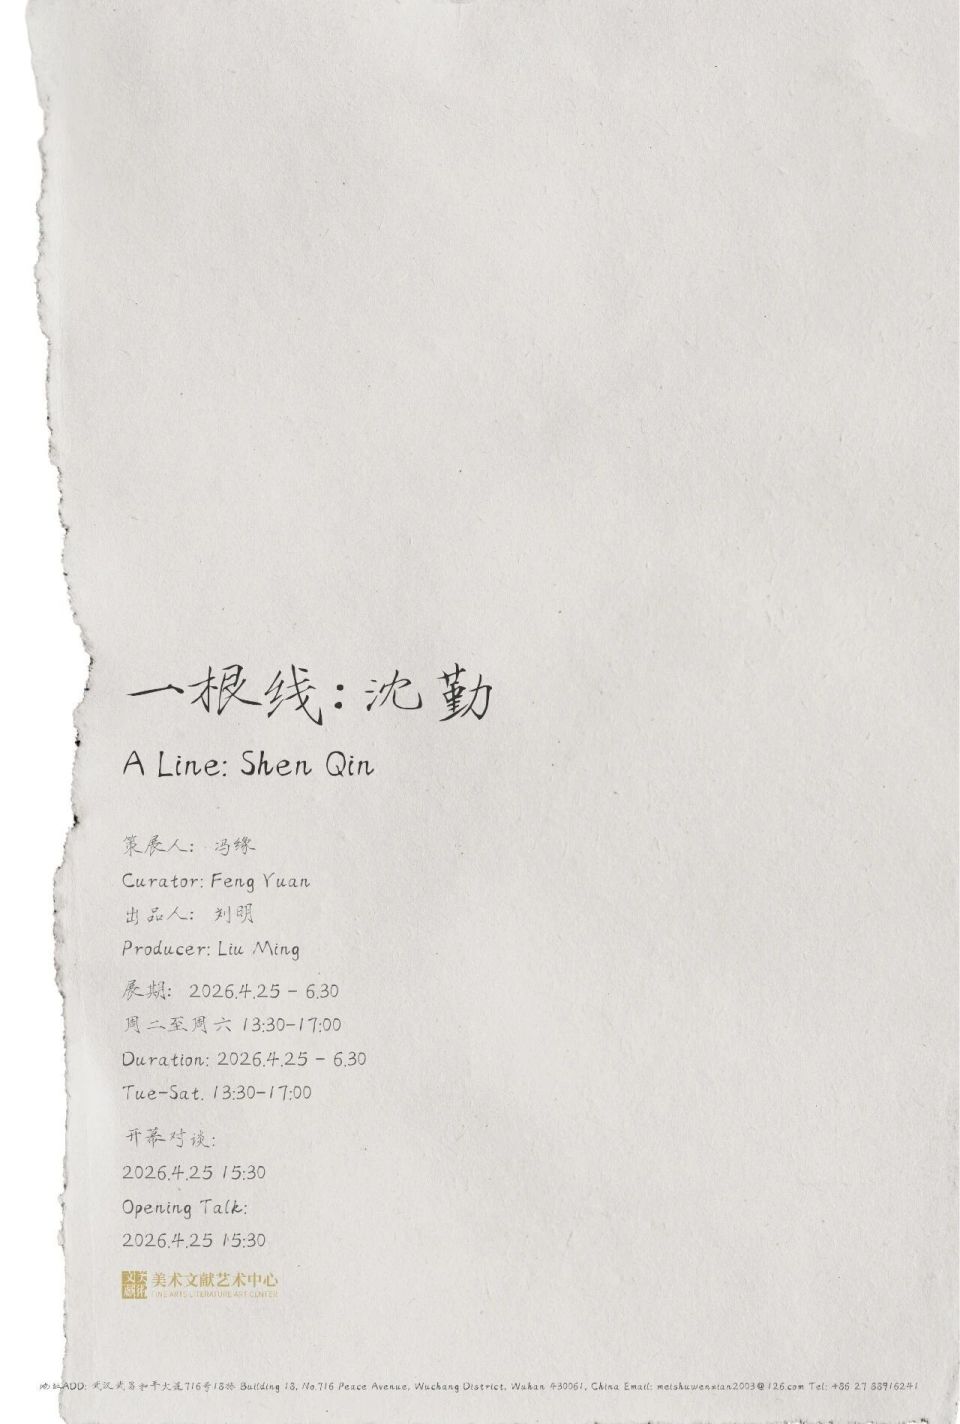 一根线：沈勤
A Line: Shen Qin
策展人： 冯缘
Curator: Feng Yuan
出品人： 刘明
Producer: Liu Ming
展期： 2026.4.25 - 6.30
周二至周六 13:30-17:00
Duration: 2026.4.25 - 6.30
Tue-Sat. 13:30-17:00
开幕对谈：
2026.4.25 15:30
Opening Talk:
2026.4.25 15:30
美术文献艺术中心
FINE ARTS LITERATURE ART CENTER
地址ADD: 武汉武昌和平大道716号18栋 Building 18, No.716 Peace Avenue, Wuchang District, Wuhan 430061, China Email: meishuwenxian2003@126.com Tel: +86 27 88916241